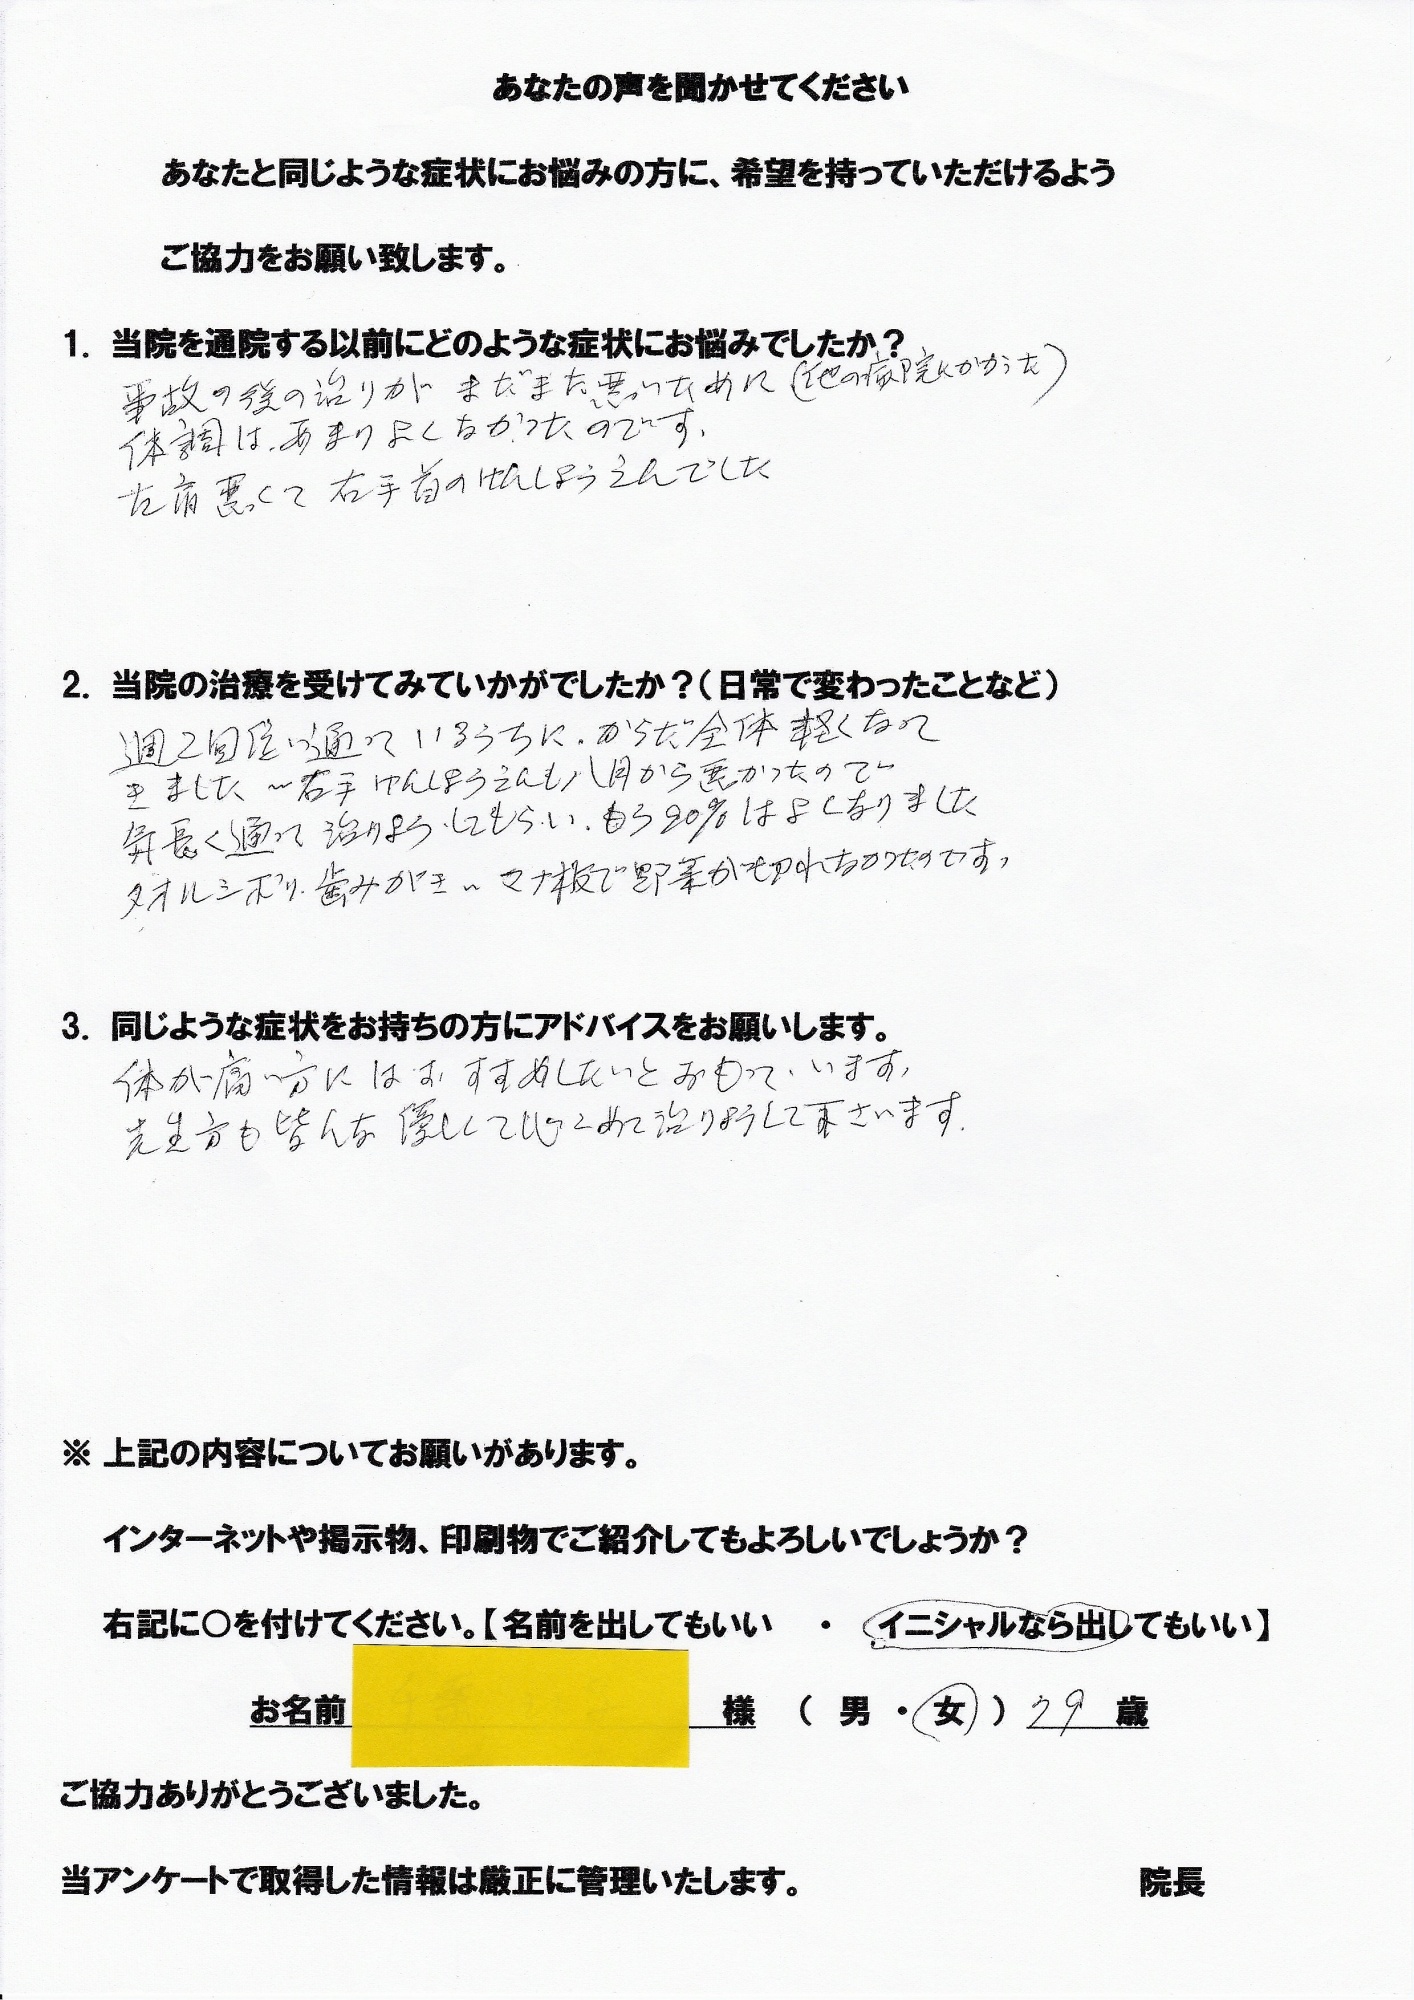 あなたの声を聞かせてください
あなたと同じような症状にお悩みの方に、希望を持っていただけるよう
ご協力をお願い致します。
1. 当院を通院する以前にどのような症状にお悩みでしたか？
事故の後の治りが まだまだ悪いために（他の病院にかかった）
体調は、あまりよくなかったのです。
左肩悪くて 右手首のけんしょうえんでした
2. 当院の治療を受けてみていかがでしたか？（日常で変わったことなど）
週2回位い通っているうちに、からだ全体軽くなって
きました〜右手けんしょうえんも八月から悪かったので
気長く通って治りようしてもらい、もう90%はよくなりました
タオルシボリ、歯みがき〜マナ板で野菜が切れなかったのです。
3. 同じような症状をお持ちの方にアドバイスをお願いします。
体が痛い方にはおすすめしたいとおもっています。
先生方も皆んな優しくて心こめて治りようして下さいます。
※ 上記の内容についてお願いがあります。
インターネットや掲示物、印刷物でご紹介してもよろしいでしょうか？
右記に○を付けてください。【 名前を出してもいい ・ イニシャルなら出してもいい 】
お名前 様 （ 男 ・ 女 ） 79 歳
ご協力ありがとうございました。
当アンケートで取得した情報は厳正に管理いたします。 院長